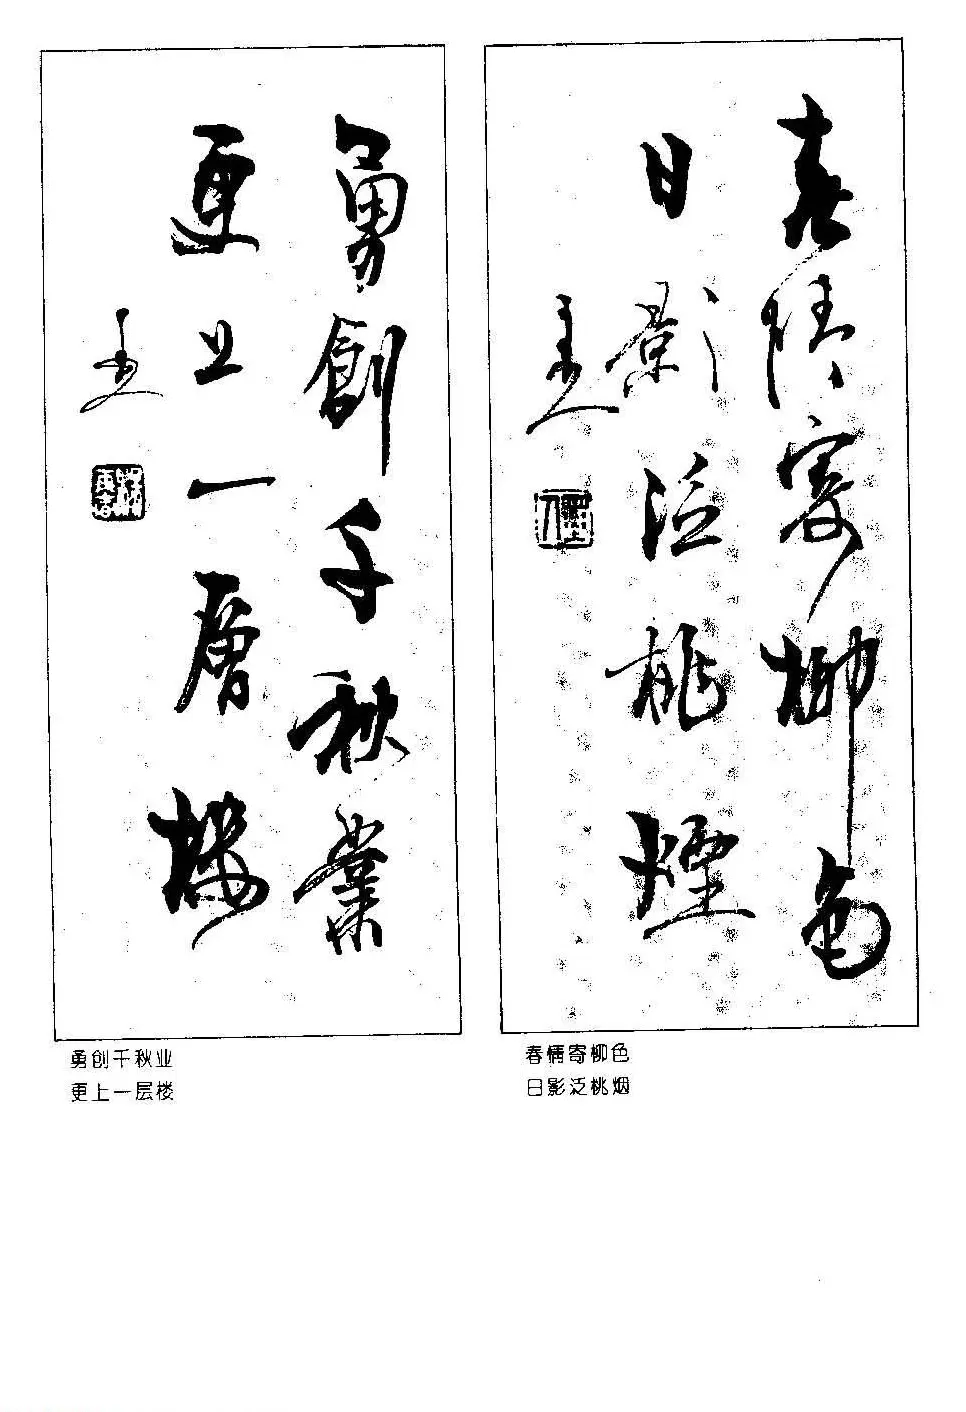 春情寄柳色
日影泛桃煙
勇創千秋業
更上一層樓
春情寄柳色
日影泛桃烟
勇创千秋业
更上一层楼